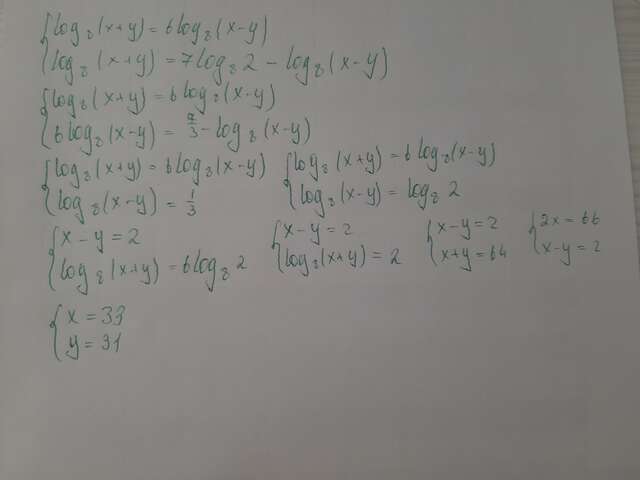 {log₈(x+y) = 6log₈(x-y)
{log₈(x+y) = 7log₈2 - log₈(x-y)
{log₈(x+y) = 6log₈(x-y)
{6log₈(x-y) = 7/3 - log₈(x-y)
{log₈(x+y) = 6log₈(x-y) {log₈(x+y) = 6log₈(x-y)
{log₈(x-y) = 1/3 {log₈(x-y) = log₈2
{x-y = 2 {x-y = 2 {x-y = 2 {2x = 66
{log₈(x+y) = 6log₈2 {log₈(x+y) = 2 {x+y = 64 {x-y = 2
{x = 33
{y = 31